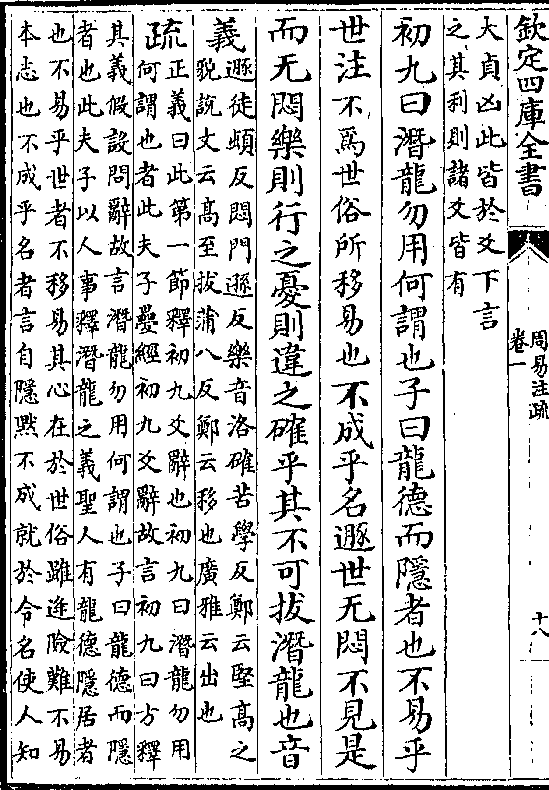 欽定四庫全書
周易注疏
卷一
十八
大貞凶此皆於爻下言
之其利則諸爻皆有
初九曰潛龍勿用何謂也子曰龍德而隱者也不易乎
世注不爲世俗所移易也不成乎名遯世无悶不見是
而无悶樂則行之憂則違之確乎其不可拔潛龍也音
義遯徒頓反悶門遜反樂音洛確苦學反鄭云堅高之
貌說文云高至拔蒲八反鄭云移也廣雅云出也
疏正義曰此第一節釋初九爻辭也初九曰潛龍勿用
何謂也者此夫子疊經初九爻辭故言初九曰方釋
其義假設問辭故言潛龍勿用何謂也子曰龍德而隱
者也此夫子以人事釋潛龍之義聖人有龍德隱居者
也不易乎世者不移易其心在於世俗雖逢險難不易
本志也不成乎名者言自隱黙不成就於令名使人知